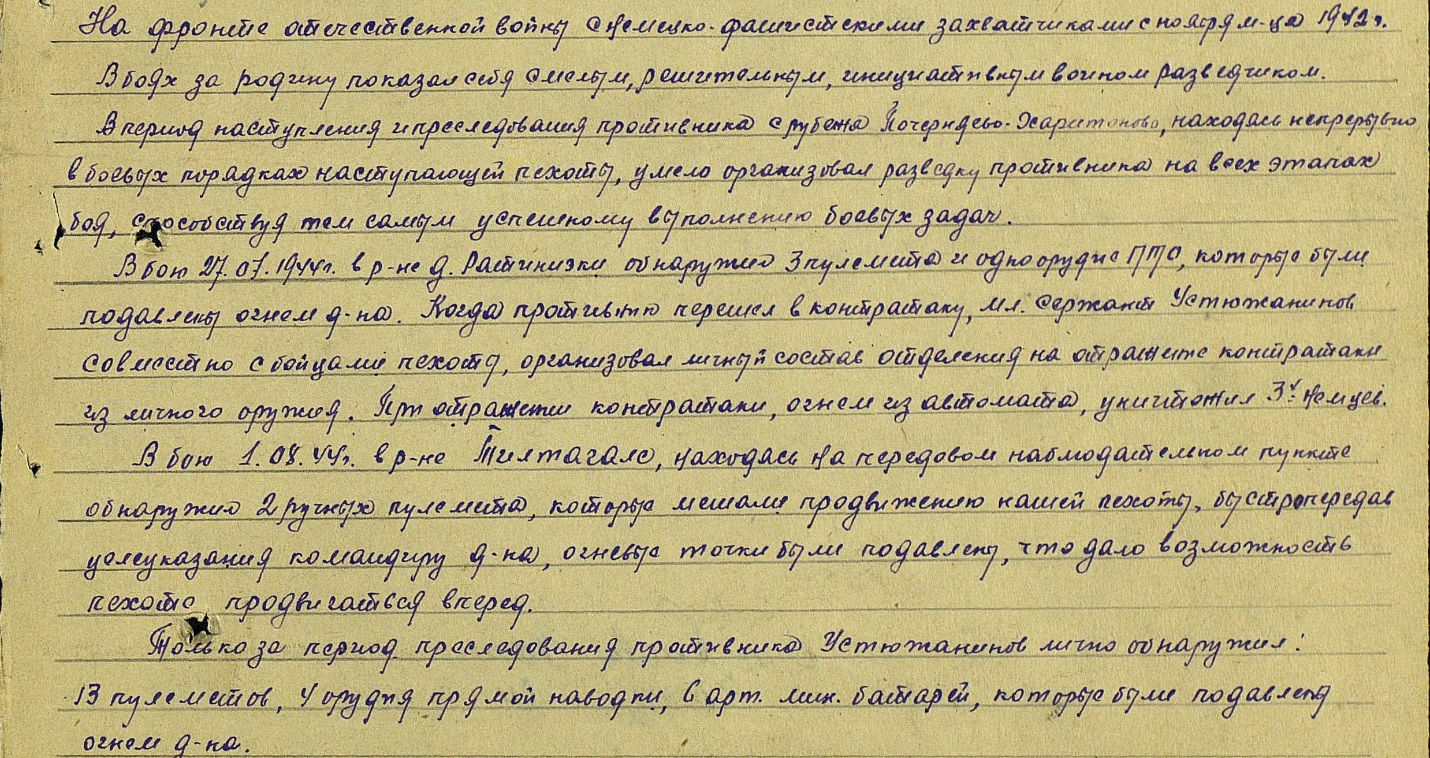 На фронте отечественной войны с немецко-фашистскими захватчиками с ноября м-ца 1942 г.
В боях за родину показал себя смелым, решительным, инициативным воином разведчиком.
В период наступления и преследования противника с рубежа Харитоново, находясь непрерывно
в боевых порядках наступающей пехоты, умело организовал разведку противника на всех этапах
боя, способствуя тем самым успешному выполнению боевых задач.
В бою 27.07.1944г. в р-не д. Ратиниэки обнаружил 3 пулемета и одно орудие ПТО, которые были
подавлены огнем д-на. Когда противник перешел в контратаку, мл. сержант Устюжанинов
совместно с бойцами пехоты, организовал личный состав отделения на отражение контратаки
из личного оружия. При отражении контратаки, огнем из автомата, уничтожил 3х немцев.
В бою 1.08.44г. в р-не Тилтагалс, находясь на передовом наблюдательном пункте
обнаружил 2 ручных пулемета, которые мешали продвижению нашей пехоты, быстро передав
целеуказания командиру д-на, огневые точки были подавлены, что дало возможность
пехоте продвигаться вперед.
Только за период преследования противника Устюжанинов лично обнаружил:
13 пулеметов, 4 орудия прямой наводки, 6 арт. мин. батарей, которые были подавлены
огнем д-на.